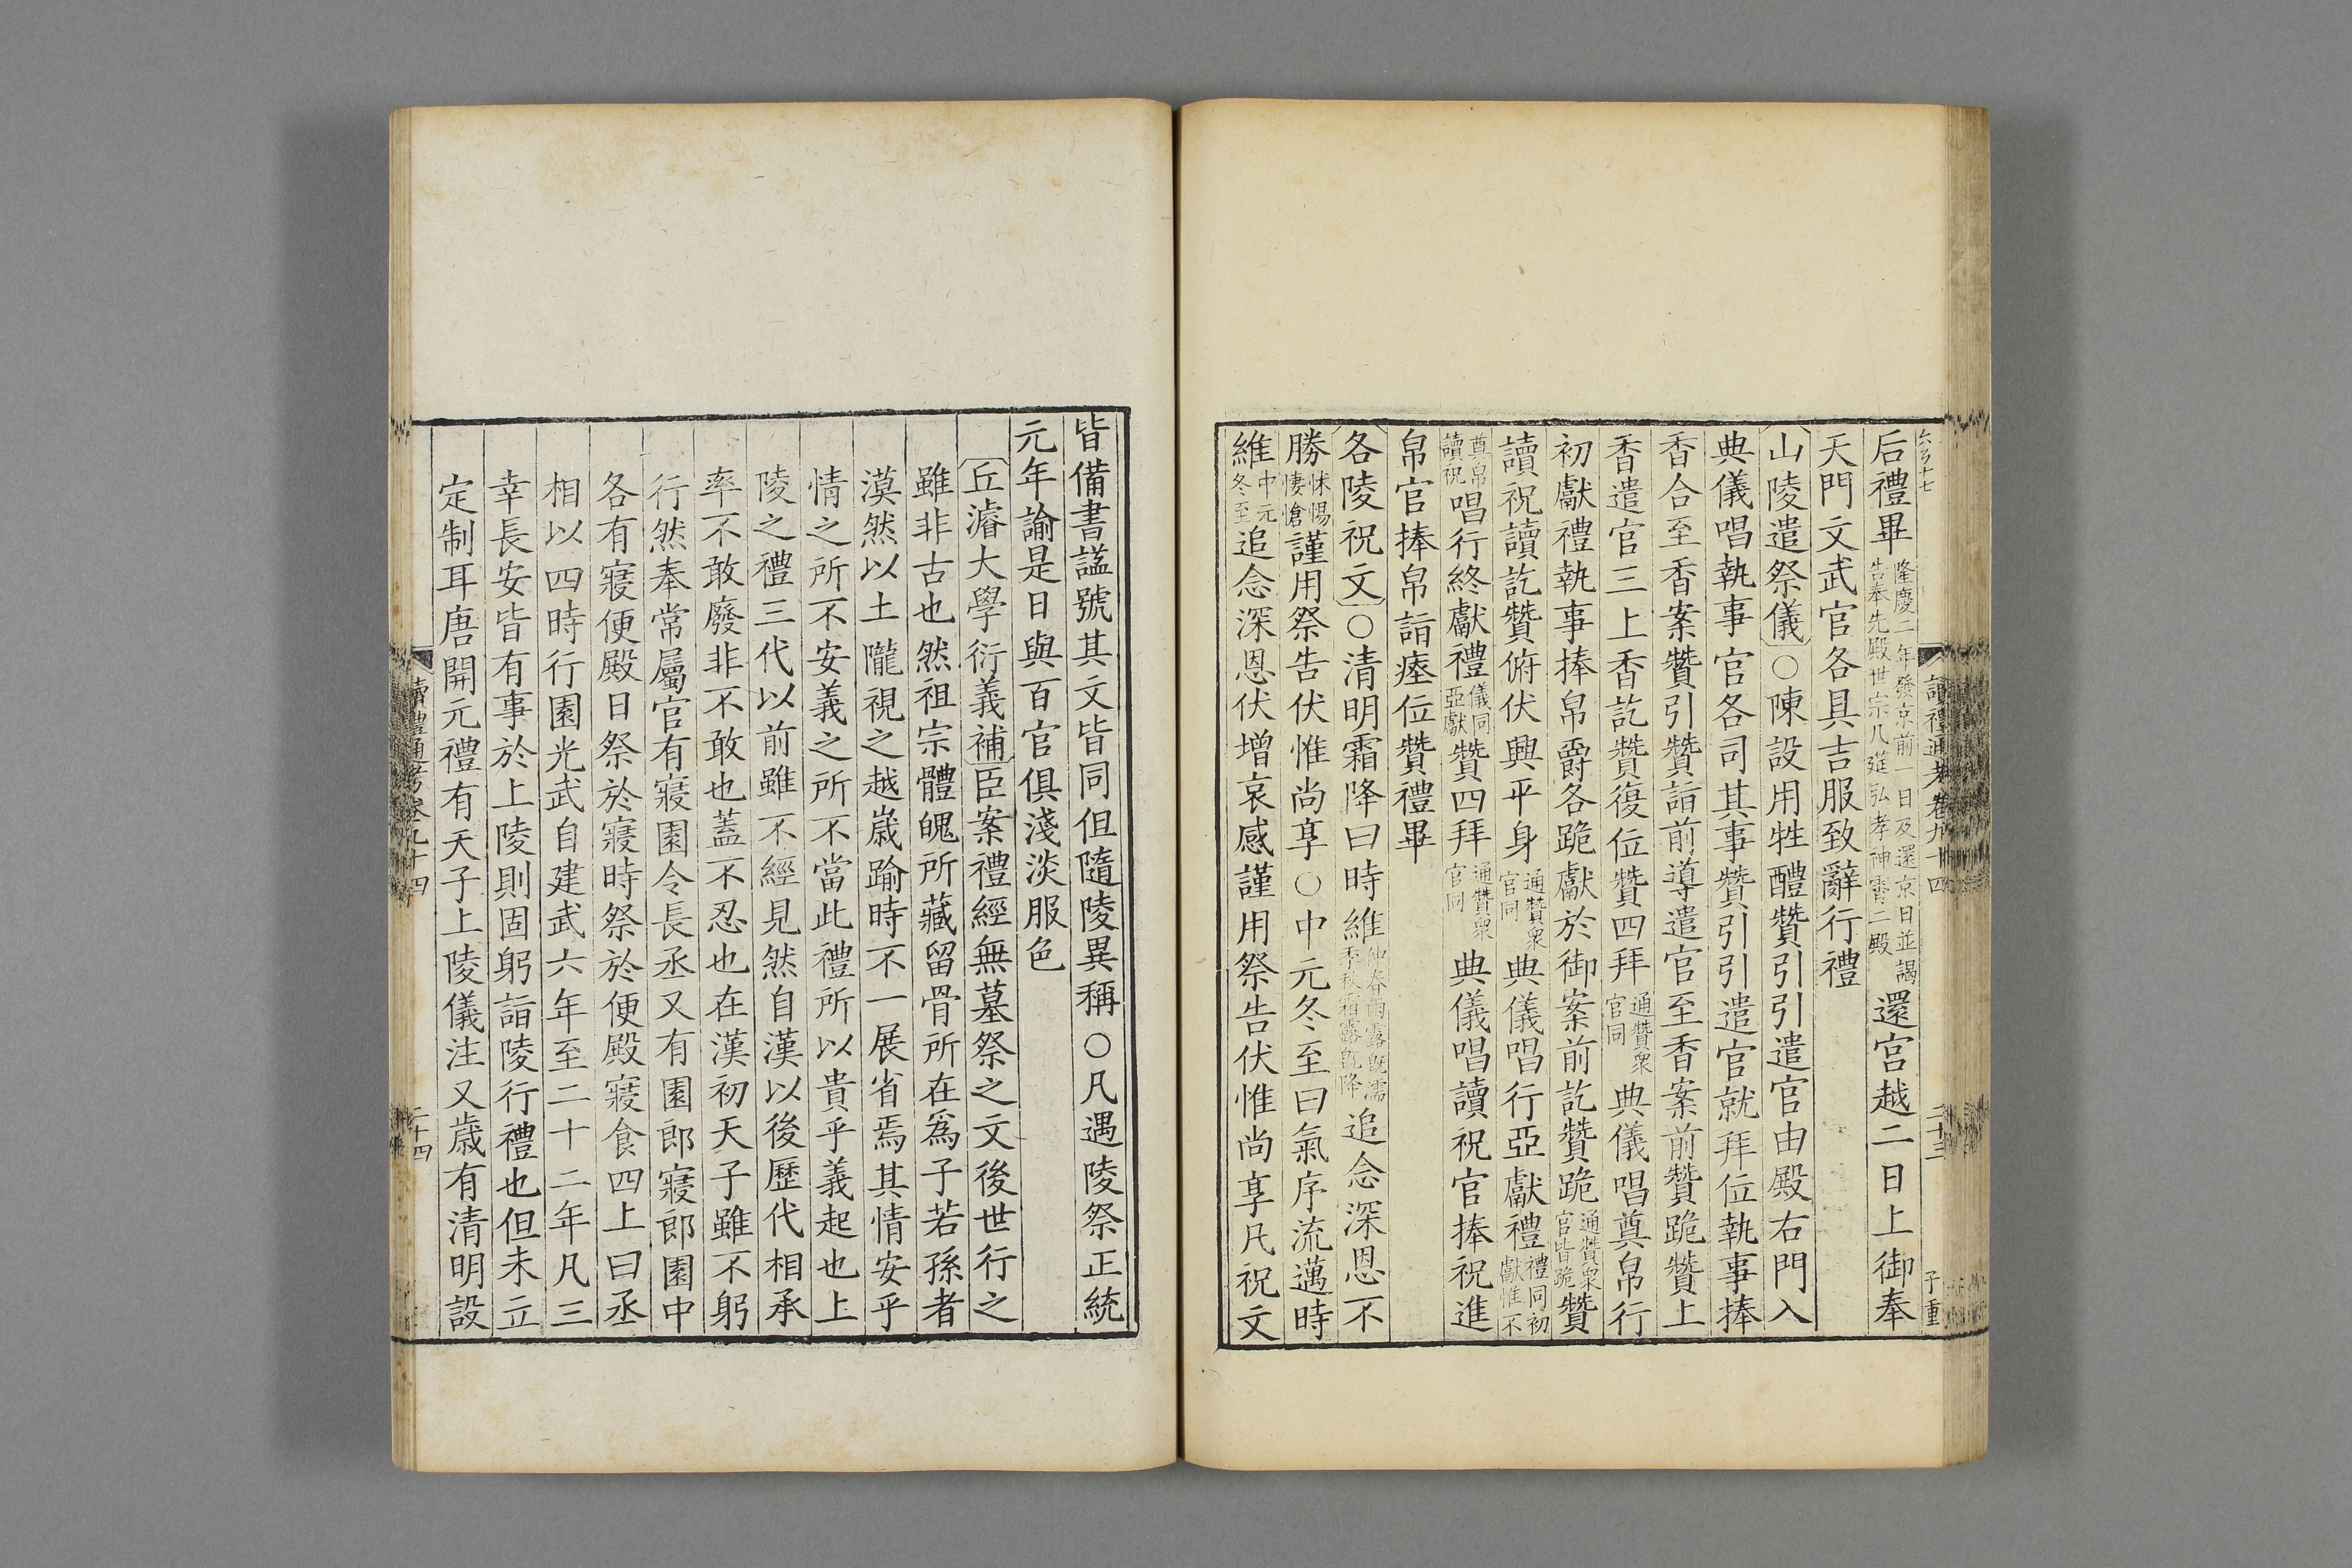 后禮畢隆慶二年發京前一日及還京日並謁告奉先殿世宗几筵弘孝神霄二殿還宮越二日上御奉
天門文武官各具吉服致辭行禮
山陵遣祭儀○陳設用牲醴贊引引遣官由殿右門入
典儀唱執事官各司其事贊引引遣官就拜位執事捧
香合至香案贊引贊詣前導遣官至香案前贊跪贊上
香遣官三上香訖贊復位贊四拜通贊衆官同典儀唱奠帛行
初獻禮執事捧帛爵各跪獻於御案前訖贊跪通贊衆官皆跪贊
讀祝讀訖贊俯伏興平身通贊衆官同典儀唱行亞獻禮禮同初獻惟不
奠帛讀祝唱行終獻禮儀同亞獻贊四拜通贊衆官同典儀唱讀祝官捧祝進
帛官捧帛詣瘞位贊禮畢
各陵祝文○清明霜降曰時維仲春雨露旣濡季秋霜露旣降追念深恩不
勝怵惕悽愴謹用祭告伏惟尚享○中元冬至曰氣序流邁時
維中元冬至追念深恩伏增哀感謹用祭告伏惟尚享凡祝文
讀禮通考卷九十四
二十三
子重
皆備書謚號其文皆同但隨陵異稱○凡遇陵祭正統
元年諭是日與百官俱淺淡服色
丘濬大學衍義補臣案禮經無墓祭之文後世行之
雖非古也然祖宗體魄所藏留骨所在爲子若孫者
漠然以土隴視之越歲踰時不一展省焉其情安乎
情之所不安義之所不當此禮所以貴乎義起也上
陵之禮三代以前雖不經見然自漢以後歷代相承
率不敢廢非不敢也蓋不忍也在漢初天子雖不躬
行然奉常屬官有寢園令長丞又有園郎寢郎園中
各有寢便殿日祭於寢時祭於便殿寢食四上曰丞
相以四時行園光武自建武六年至二十二年凡三
幸長安皆有事於上陵則固躬詣陵行禮也但未立
定制耳唐開元禮有天子上陵儀注又歲有清明設
讀禮通考卷九十四
二十四